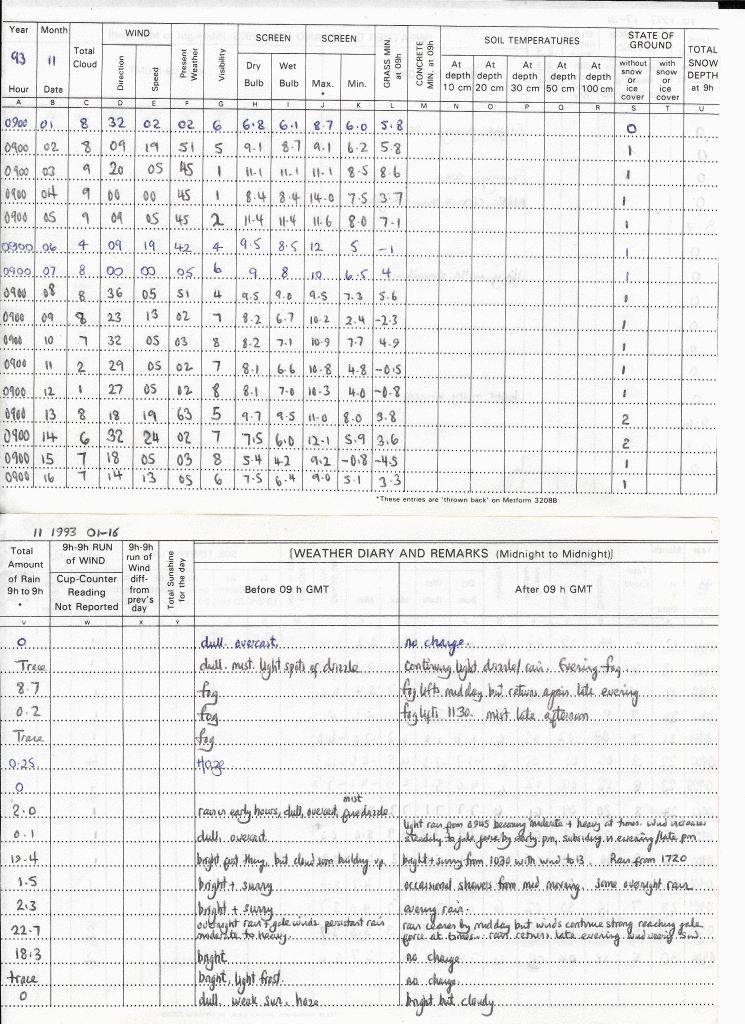 Year Month Total Cloud WIND Present Weather Visibility SCREEN SCREEN GRASS MIN. at 09h CONCRETE MIN. at 09h SOIL TEMPERATURES STATE OF GROUND TOTAL SNOW DEPTH at 9h
93 11 Direction Speed Dry Bulb Wet Bulb Max. * Min. At depth 10 cm At depth 20 cm At depth 30 cm At depth 50 cm At depth 100 cm without snow or ice cover with snow or ice cover
Hour Date
A B C D E F G H I J K L M N O P Q R S T U
0900 01 8 32 02 02 6 6.8 6.1 8.7 6.0 5.8 0
0900 02 8 09 19 51 5 9.1 8.7 9.1 6.2 5.8 1
0900 03 9 20 05 45 1 11.1 11.1 11.1 8.5 8.6 1
0900 04 9 00 00 45 1 8.4 8.4 14.0 7.5 3.7 1
0900 05 9 09 05 45 2 11.4 11.4 11.6 8.0 7.1 1
0900 06 4 09 19 42 4 9.5 8.5 12 5 -1 1
0900 07 8 00 00 05 6 9 8 10 6.5 4 1
0900 08 8 36 05 51 4 9.5 9.0 9.5 7.3 5.6 1
0900 09 8 23 13 02 7 8.2 6.7 10.2 2.4 -2.3 1
0900 10 7 32 05 03 8 8.2 7.1 10.9 7.7 4.9 1
0900 11 2 29 05 02 7 8.1 6.6 10.8 4.8 -0.5 1
0900 12 1 27 05 02 8 8.1 7.0 10.3 4.0 -0.8 1
0900 13 8 18 19 63 5 9.7 9.5 11.0 8.0 3.8 2
0900 14 6 32 24 02 7 7.5 6.0 12.1 5.9 3.6 2
0900 15 7 18 05 03 8 5.4 4.2 9.2 -0.8 -4.5 1
0900 16 7 14 13 05 6 7.5 6.4 9.0 5.1 3.3 1
*These entries are 'thrown back' on Metform 3208B
11 1993 01-16
Total Amount of Rain 9h to 9h * 9h-9h RUN of WIND Cup-Counter Reading Not Reported 9h-9h run of Wind diff- from prev's day Total Sunshine for the day [WEATHER DIARY AND REMARKS (Midnight to Midnight)]
Before 09 h GMT After 09 h GMT
V W X Y
0 dull. overcast. no change.
Trace dull. mist. light spots of drizzle continuing light drizzle/ rain. Evening fog.
8.7 fog fog lifts midday but returns again late evening
0.2 fog fog lifts 1130. mist late afternoon
Trace fog
0.25. Haze
0
2.0 rain in early hours, dull, overcast, mist fine drizzle
light rain from 0945 becoming moderate + heavy at times. wind increases
0.1 dull, overcast. steadily to gale force by early pm, subsiding in evening/late pm
19.4 bright first thing, but cloud soon building up. bright + sunny from 1030 with wind to 13. Rain from 1720
1.5 bright + sunny occasional showers from mid morning. Some overnight rain
2.3 bright + sunny evening rain.
22.7 overnight rain + gale winds. persistant rain moderate to heavy. rain ceases by midday but winds continue strong reaching gale force at times... rain returns late evening. wind veering SW.
18.3 bright. no change
trace bright, light frost. no change.
0 dull, weak sun. haze bright but cloudy